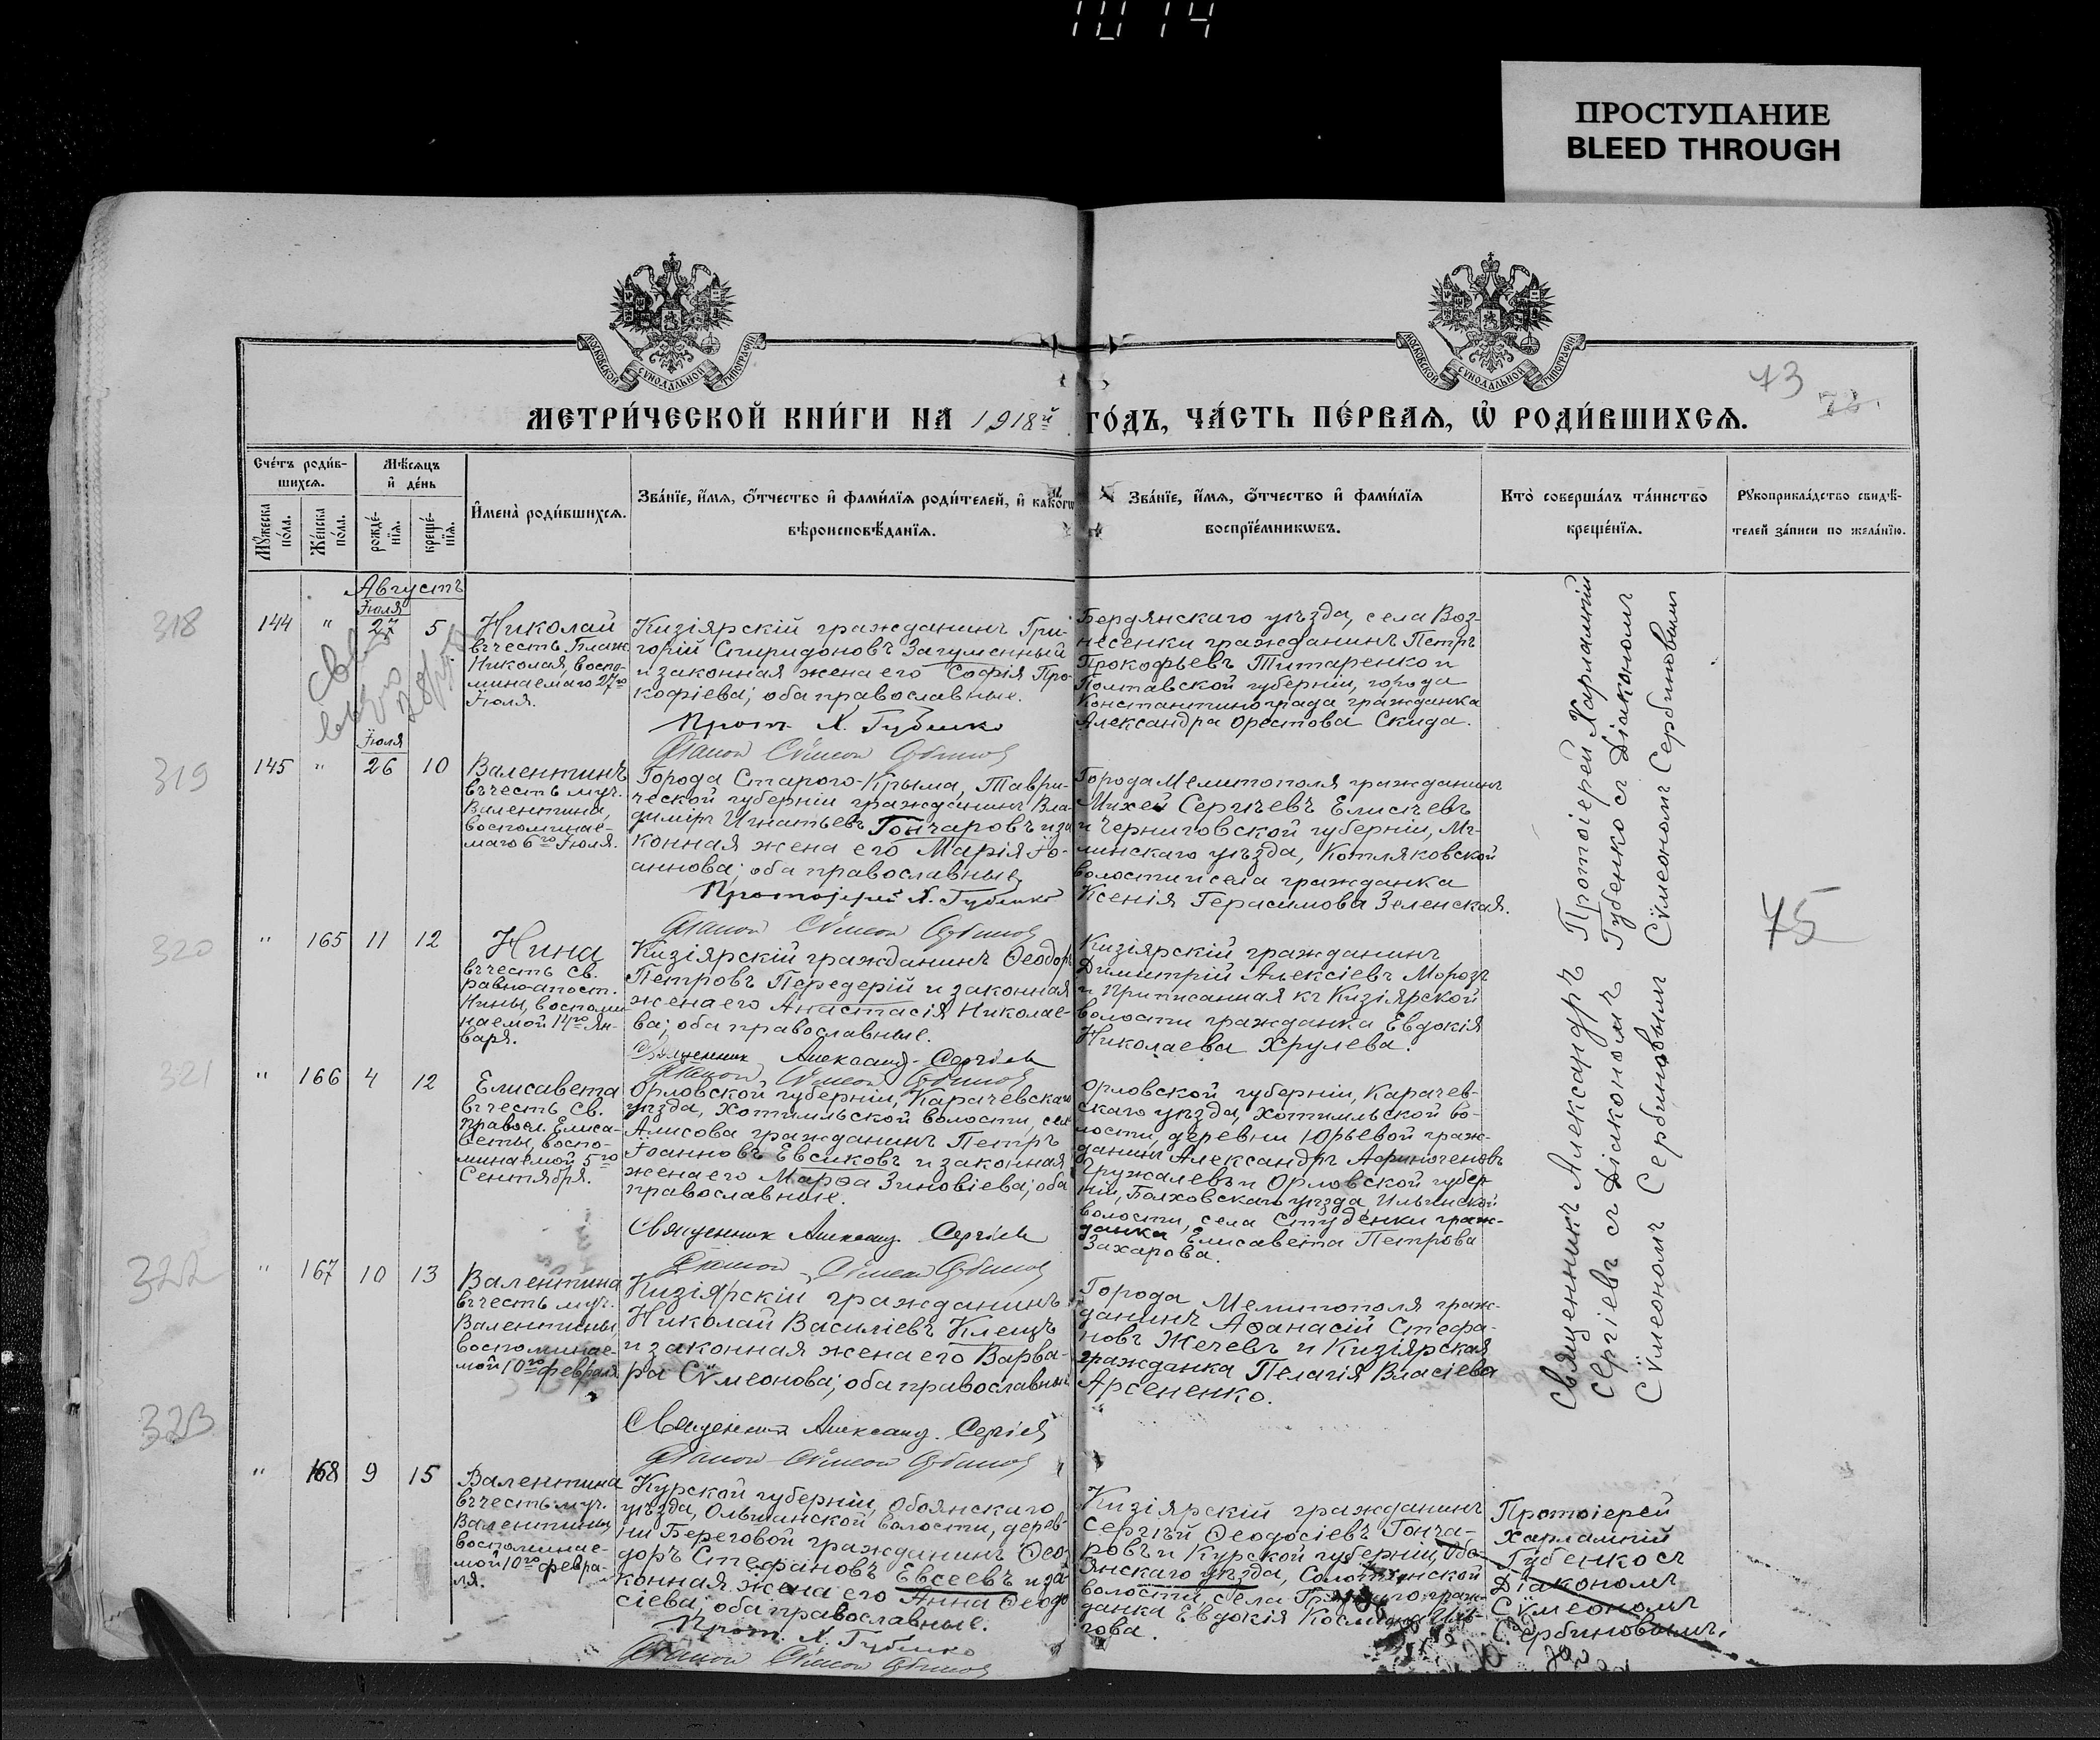 1014
ПРОСТУПАНИЕ
BLEED THROUGH
МОСКОВСКОЙ СѴНОДАЛЬНОЙ ТИПОГРАФІИ
МОСКОВСКОЙ СѴНОДАЛЬНОЙ ТИПОГРАФІИ
73
МЕТРИ́ЧЕСКОЙ КНИ́ГИ НА 1918й ГО́ДЪ, ЧА́СТЬ ПЕ́РВАѦ, Ѡ҆ РОДИ́ВШИХСѦ.
Сче́тъ роди́в-
шихсѧ.
Мꙋ́жеска по́ла.
Же́нска по́ла.
Мѣ́сѧцъ
и҆ де́нь
рожде́-
нїѧ.
креще́-
нїѧ.
И҆мена̀ роди́вшихсѧ.
Зва́нїе, и҆́мѧ, ѻ҆́тчество и҆ фами́лїѧ роди́телей, и҆ како́гѡ
вѣроисповѣ́данїѧ.
Зва́нїе, и҆́мѧ, ѻ҆́тчество и҆ фами́лїѧ
воспрїе́мникѡвъ.
Кто̀ соверша́лъ та́инство
креще́нїѧ.
Рꙋкоприкла́дство свидѣ́-
телей за́писи по жела́нїю.
Августъ
318
144
"
Іюля
27
5
Николай
въ честь Блаж.
Николая, воспо-
минаемаго 27го
Іюля.
Кизіярскій гражданинъ Гри-
горій Спиридоновъ Загуменный
и законная жена его Софія Про-
кофіева; оба православные.
Прот. Х. Губенко
Бердянскаго уѣзда, села Воз-
несенки гражданинъ Петръ
Прокофьевъ Титаренко и
Полтавской губерніи, города
Константинограда гражданка
Александра Орестова Скида.
319
145
"
Іюля
26
10
Валентинъ
въ честь муч.
Валентина,
воспоминае-
маго 6го Іюля.
Города Старого-Крыма, Таври-
ческой губерніи гражданинъ Вла-
диміръ Игнатьевъ Гончаровъ и за
конная жена его Марія Іо-
аннова; оба православные
Протоіерей Х. Губенко
Города Мелитополя гражданинъ
Михей Сергѣевъ Елисѣевъ
и Черниговской губерніи, Мг-
линскаго уѣзда, Котляковской
волости и села гражданка
Ксенія Герасимова Зеленская.
320
"
165
11
12
Нина
въ честь Св.
равно-апост.
Нины, воспоми
наемой 14го Ян-
варя.
Кизіярскій гражданинъ Ѳеодоръ
Петровъ Передерій и законная
жена его Анастасія Николае-
ва; оба православные.
Священник Александ. Сергіев
Кизіярскій гражданинъ
Димитрій Алексіевъ Морозъ
и приписанная къ Кизіярской
волости гражданка Евдокія
Николаева Хрулева.
321
"
166
4
12
Елисавета
въ честь Св.
правосл. Елиса-
веты, воспо-
минаемой 5го
Сентября.
Орловской губерніи, Карачевскаго
уѣзда, Хотимльской волости, села
Алисова гражданинъ Петръ
Іоанновъ Евсиковъ и законная
жена его Марѳа Зиновіева; оба
православные.
Священник Александ. Сергіев
Орловской губерніи, Карачев-
скаго уѣзда, Хотимльской во-
лости, деревни Юрьевой граж-
данинъ Александръ
Гружалевъ и Орловской губер
ніи, Болховскаго уѣзда, Ильинской
волости, села Студенки граж-
данка Елисавета Петрова
Захарова.
322
"
167
10
13
Валентина
въ честь муч.
Валентины
воспоминае-
мой 10го февраля
Кизіярскій гражданинъ
Николай Василіевъ Клещъ
и законная жена его Варва-
ра Сѵмеонова; оба православные
Священник Александ. Сергіев
Города Мелитополя граж-
данинъ Аѳанасій Стефа-
новъ Жечевъ и Кизіярская
гражданка Пелагія Власіева
Арсененко.
323
"
168
9
15
Валентина
въ честь муч.
Валентины
воспоминае-
мой 10го февра-
ля.
Курской губерніи, Обоянскаго
уѣзда, Ольшанской волости, дерев-
ни Береговой гражданинъ Ѳео-
доръ Стефановъ Евсеевъ и за-
конная жена его Анна Ѳеодо
сіева; оба православные.
Прот. Х. Губенко
Кизіярскій гражданинъ
Сергѣй Ѳеодосіевъ Гонча-
ровъ и Курской губерніи, Обо-
янскаго уѣзда,
волости, села граж-
данка Евдокія
Священникъ Александръ
Сергіевъ съ Діакономъ
Сѵмеономъ Сербиновымъ
Протоіерей Харлампій
Губенко съ Діакономъ
Сѵмеономъ Сербиновымъ
75
Протоіерей
Харлампій
Губенко съ
Діакономъ
Сѵмеономъ
Сербиновымъ.